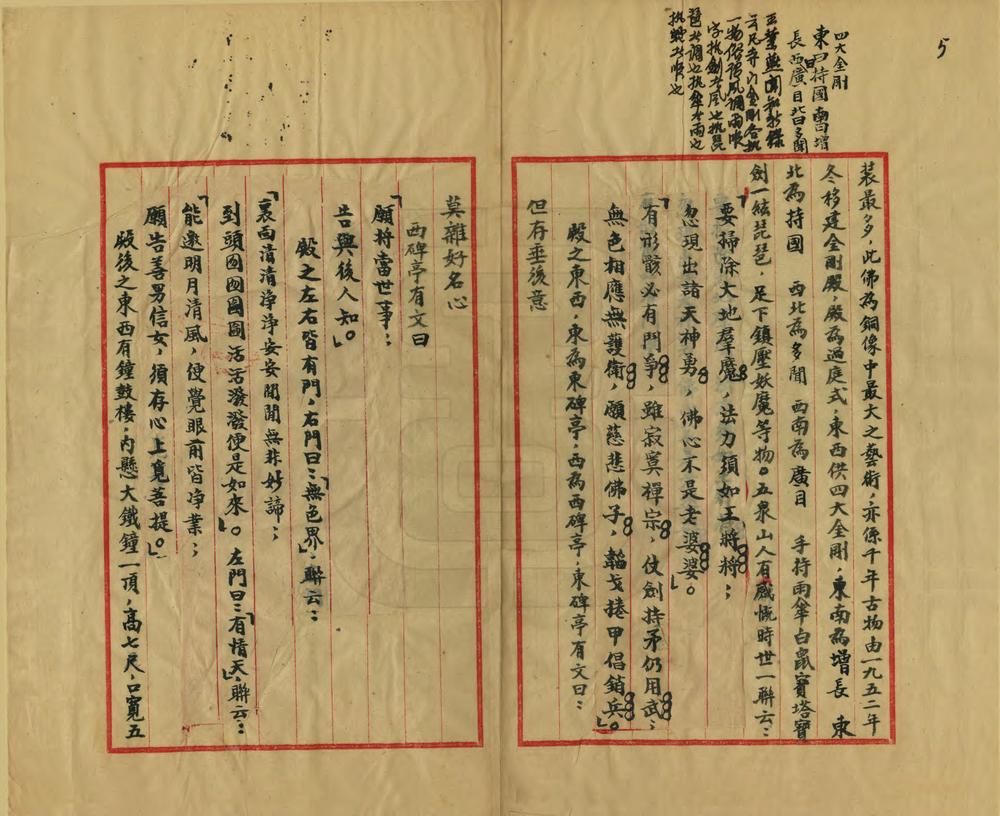 5
四大金剛
東曰持國南曰增
長西廣目北曰多聞
云凡寺門金剛各執
一物俗謂風調雨順
字執劍者風也執琵
琶者調也執傘者雨也
执蛇者順也
裝最多，此佛為銅像中最大之藝術，亦係千年古物由一九五二年
冬移建金剛殿，殿為過庭式，東西供四大金剛，東南為增長 東
北為持國 西北為多聞 西南為廣目 手持雨傘白鼠寶塔寶
劍一絃琵琶，足下鎮壓妖魔等物。五泉山人有感慨時世一聯云：
「要掃除大地羣魔，法力須如王將將；
忽現出諸天神勇，佛心不是老婆婆」。
「有形骸必有鬥爭，雖寂寞禪宗，仗劍持矛仍用武；
無色相應無護衛，願慈悲佛子，韜戈捲甲倡銷兵」。
殿之東西，東為東碑亭，西為西碑亭，東碑亭有文曰：
但存垂後意
莫雜好名心
西碑亭有文曰
「願將當世事；
告與後人知。」
殿之左右皆有門，右門曰：「無色界」，聯云：
「裏面清清淨淨安安閒閒無非妙諦；
到頭囫囫圇圇活活潑潑便是如來」。左門曰：「有情天」，聯云：
「能邀明月清風，便覺眼前皆净業；
願告善男信女，須存心上覓菩提」。
殿後之東西有鐘鼓樓，內懸大鐵鐘一頂，高七尺，口寬五